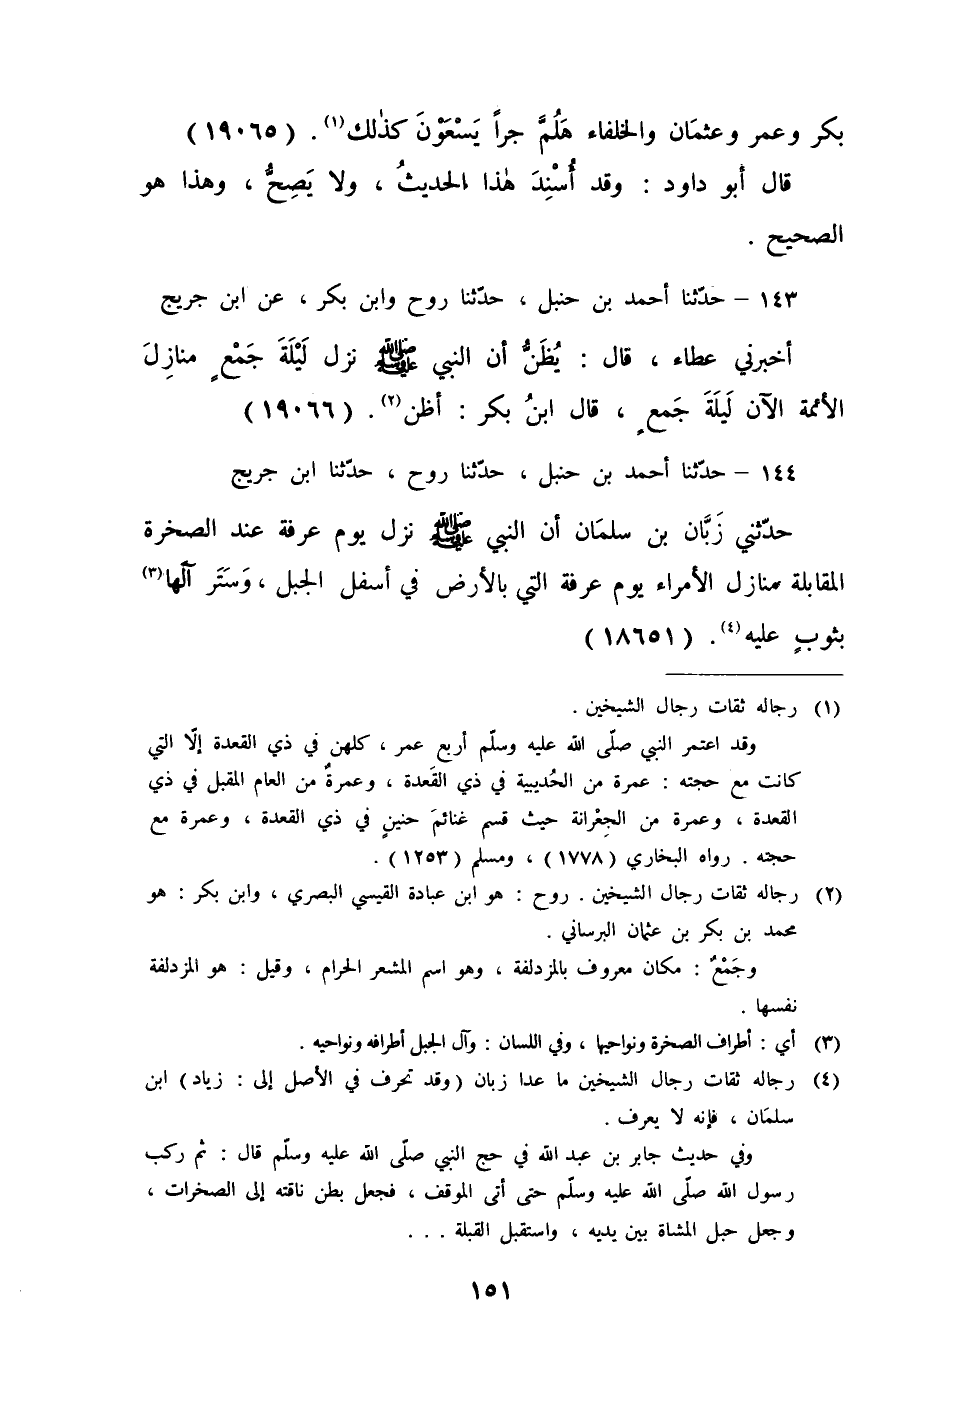 بكر وعمر وعثمَان والخلفاء هَلُمَّ جراً يَسْعَوْنَ كذٰلك(١) . (١٩٠٦٥)
قال أبو داود : وقد أُسْنِدَ هٰذا الحديثُ ، ولا يَصِحُّ ، وهذا هو
الصحيح .
١٤٣ – حدّثنا أحمد بن حنبل ، حدّثنا روح وابن بكر ، عن ابن جريج
أخبرني عطاء ، قال : يُظَنُّ أن النبي ﷺ نزل لَيْلَةَ جَمْعٍ منازِلَ
الأئمة الآن لَيلَةَ جَمعٍ ، قال ابنُ بكر : أظن(٢) . (١٩٠٦٦)
١٤٤ – حدّثنا أحمد بن حنبل ، حدّثنا روح ، حدّثنا ابن جريج
حدّثني زَبَّان بن سلمَان أن النبي ﷺ نزل يوم عرفة عند الصخرة
المقابلة منازل الأمراء يوم عرفة التي بالأرض في أسفل الجبل ، وَسَتَر آلَها(٣)
بثوبٍ عليه(٤) . (١٨٦٥١)
(١) رجاله ثقات رجال الشيخين .
وقد اعتمر النبي صلّى الله عليه وسلّم أربع عمر ، كلهن في ذي القعدة إلّا التي
كانت مع حجته : عمرة من الحُديبية في ذي القَعدة ، وعمرةٌ من العام المقبل في ذي
القعدة ، وعمرة من الجِعْرانة حيث قسم غنائمَ حنينٍ في ذي القعدة ، وعمرة مع
حجته . رواه البخاري (١٧٧٨) ، ومسلم (١٢٥٣) .
(٢) رجاله ثقات رجال الشيخين . روح : هو ابن عبادة القيسي البصري ، وابن بكر : هو
محمد بن بكر بن عثمان البرساني .
وجَمْعٌ : مكان معروف بالمزدلفة ، وهو اسم المشعر الحرام ، وقيل : هو المزدلفة
نفسها .
(٣) أي : أطراف الصخرة ونواحيها ، وفي اللسان : وآل الجبل أطرافه ونواحيه .
(٤) رجاله ثقات رجال الشيخين ما عدا زبان (وقد تحرف في الأصل إلى : زياد) ابن
سلمَان ، فإنه لا يعرف .
وفي حديث جابر بن عبد الله في حج النبي صلّى الله عليه وسلّم قال : ثم ركب
رسول الله صلّى الله عليه وسلّم حتى أتى الموقف ، فجعل بطن ناقته إلى الصخرات ،
وجعل حبل المشاة بين يديه ، واستقبل القبلة . . .
١٥١